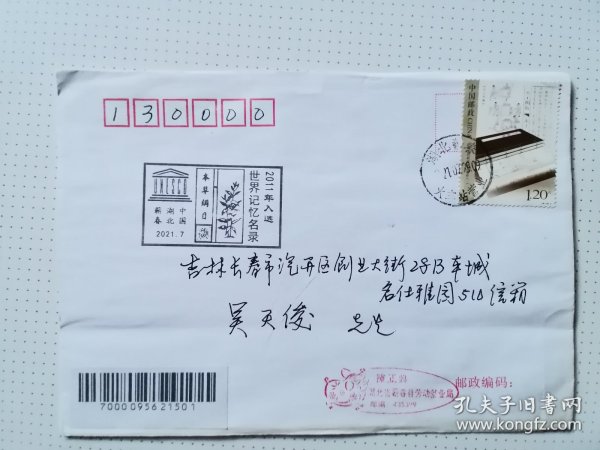 130000
中国邮政 CHINA
1.20
UNESCO
2011年入选
世界记忆名录
本草纲目
中国
湖北
蕲春
2021.7
吉林长春市汽开区创业大街28B车城
名仕雅园510信箱
吴天俊 先生
7000095621501
湖北省蕲春县劳动就业局
邮政编码：
孔夫子旧书网
www.kongfz.com